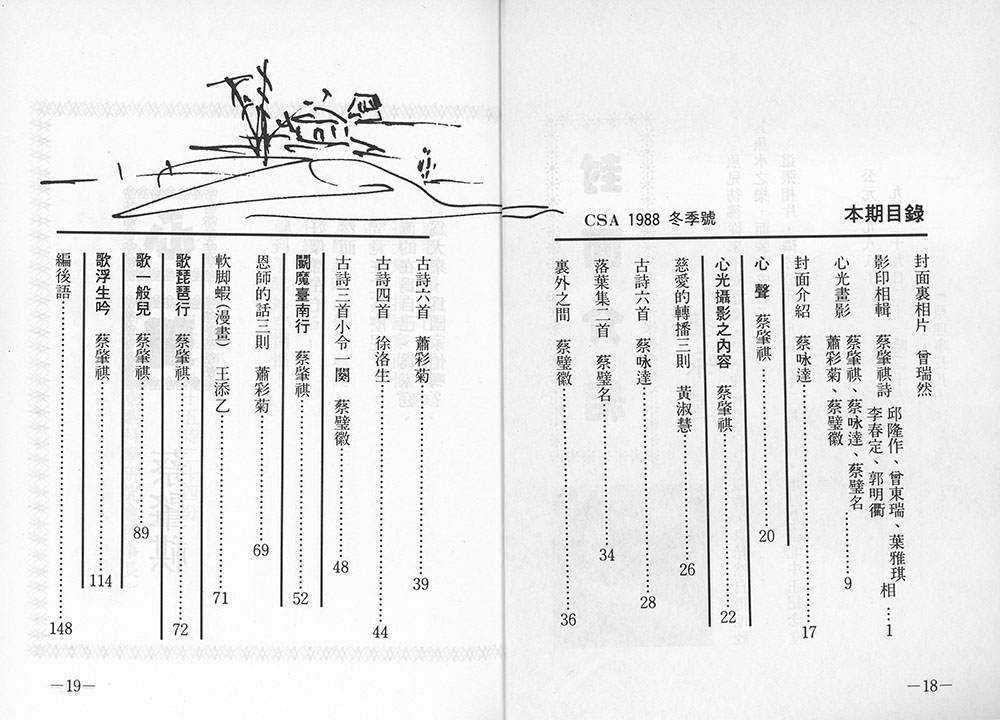 本期目錄
CSA 1988 冬季號
封面裏相片 曾瑞然
影印相輯 蔡肇祺詩 邱隆作、曾東瑞、葉雅琪 李春定、郭明衢 相…1
心光畫影 蔡肇祺、蔡咏達、蔡璧名 蕭彩菊、蔡璧徽…9
封面介紹 蔡咏達…17
心聲 蔡肇祺…20
心光攝影之內容 蔡肇祺…22
慈愛的轉播三則 黃淑慧…26
古詩六首 蔡咏達…28
落葉集二首 蔡璧名…34
裏外之間 蔡璧徽…36
—18—
古詩六首 蕭彩菊…39
古詩四首 徐洛生…44
古詩三首小令一闋 蔡璧徽…48
鬮魔臺南行 蔡肇祺…52
恩師的話三則 蕭彩菊…69
軟脚蝦(漫畫) 王添乙…71
歌琵琶行 蔡肇祺…72
歌一般兒 蔡肇祺…89
歌浮生吟 蔡肇祺…114
編後語…148
—19—